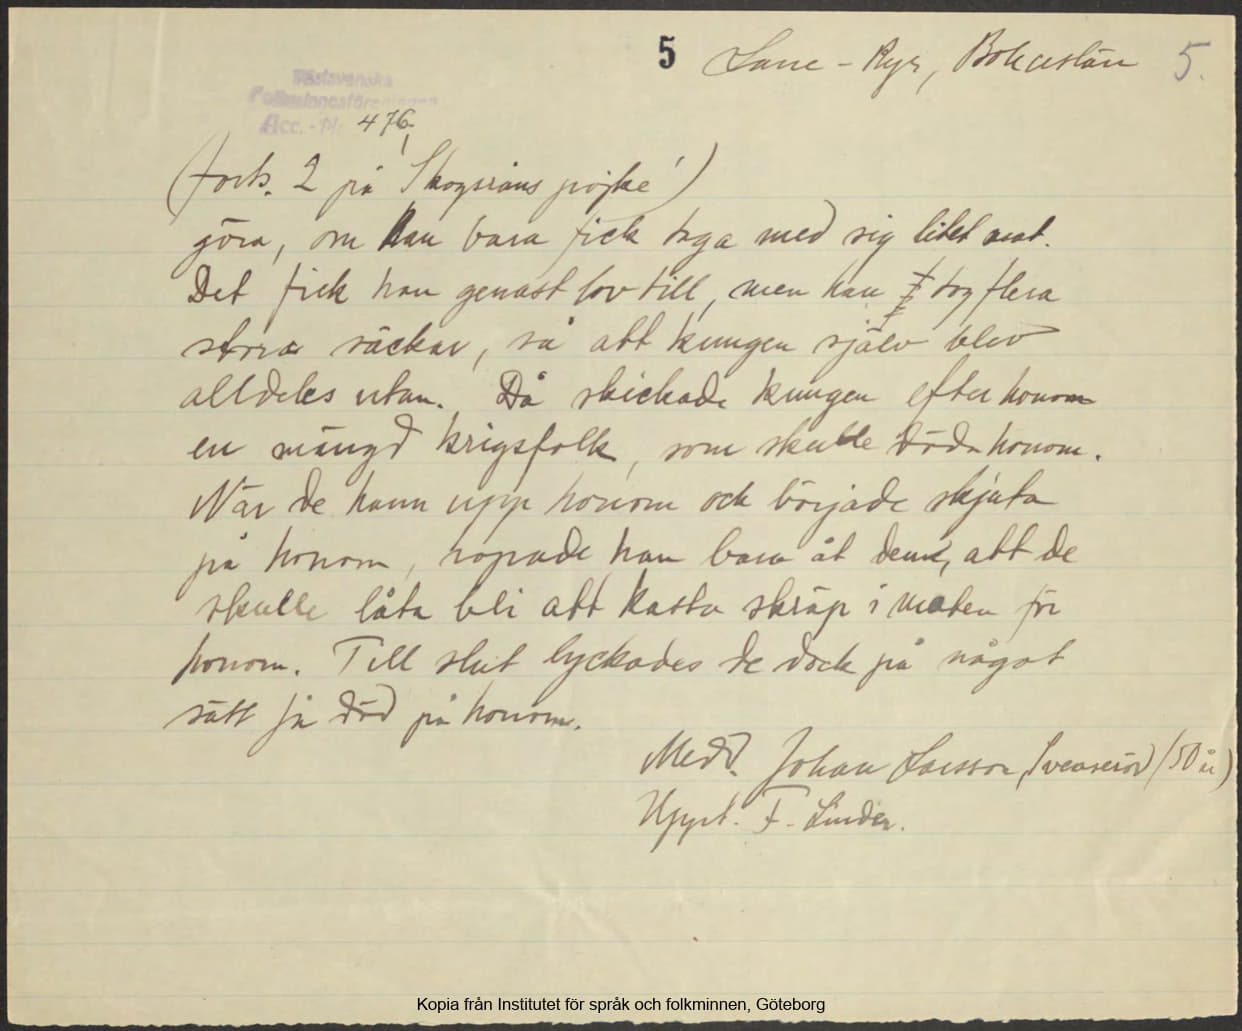 5 Lane-Ryr, Bohuslän 5.
Västsvenska
Folkminnesföreningen
Acc. - Nr 476,
(forts. 2 på 'Skogsråns pojke')
göra, om han bara fick taga med sig litet mat.
Det fick han genast lov till, men han tog flera
stora säckar, så att kungen själv blev
alldeles utan. Då skickade kungen efter honom
en mängd krigsfolk, som skulle döda honom.
När de hann upp honom och började skjuta
på honom, ropade han bara åt dem, att de
skulle låta bli att kasta skräp i maten för
honom. Till slut lyckades de dock på något
sätt få död på honom.
Medd. Johan Larsson, (50 år)
Uppt. F. Linder.
Kopia från Institutet för språk och folkminnen, Göteborg